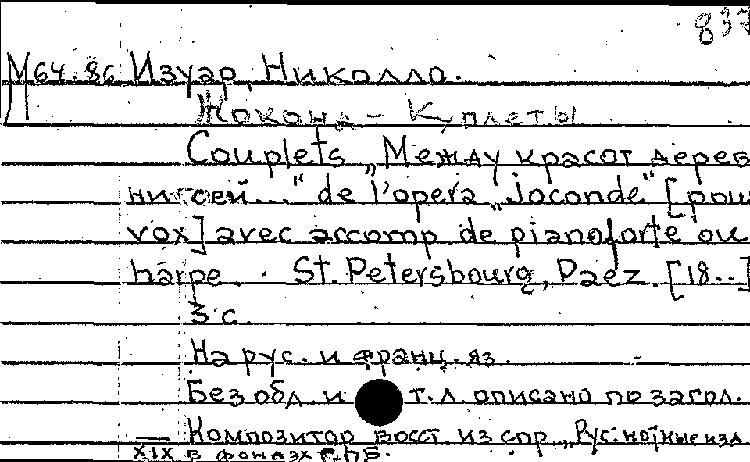 837
М64.86 Изуар, Николло.
Жоконд – Куплеты
Couplets „Между красот дерев
ни сей..." de l'opera „Joconde" [pour
vox] avec accomp de pianoforte ou
harpe. St. Petersbourg, Paez. [18..]
3 с.
На рус. и франц. яз.
Без обл. и т.л. описано по загол.
— Композитор восст. из спр. „Рус. нотные изд
XIX в фондах